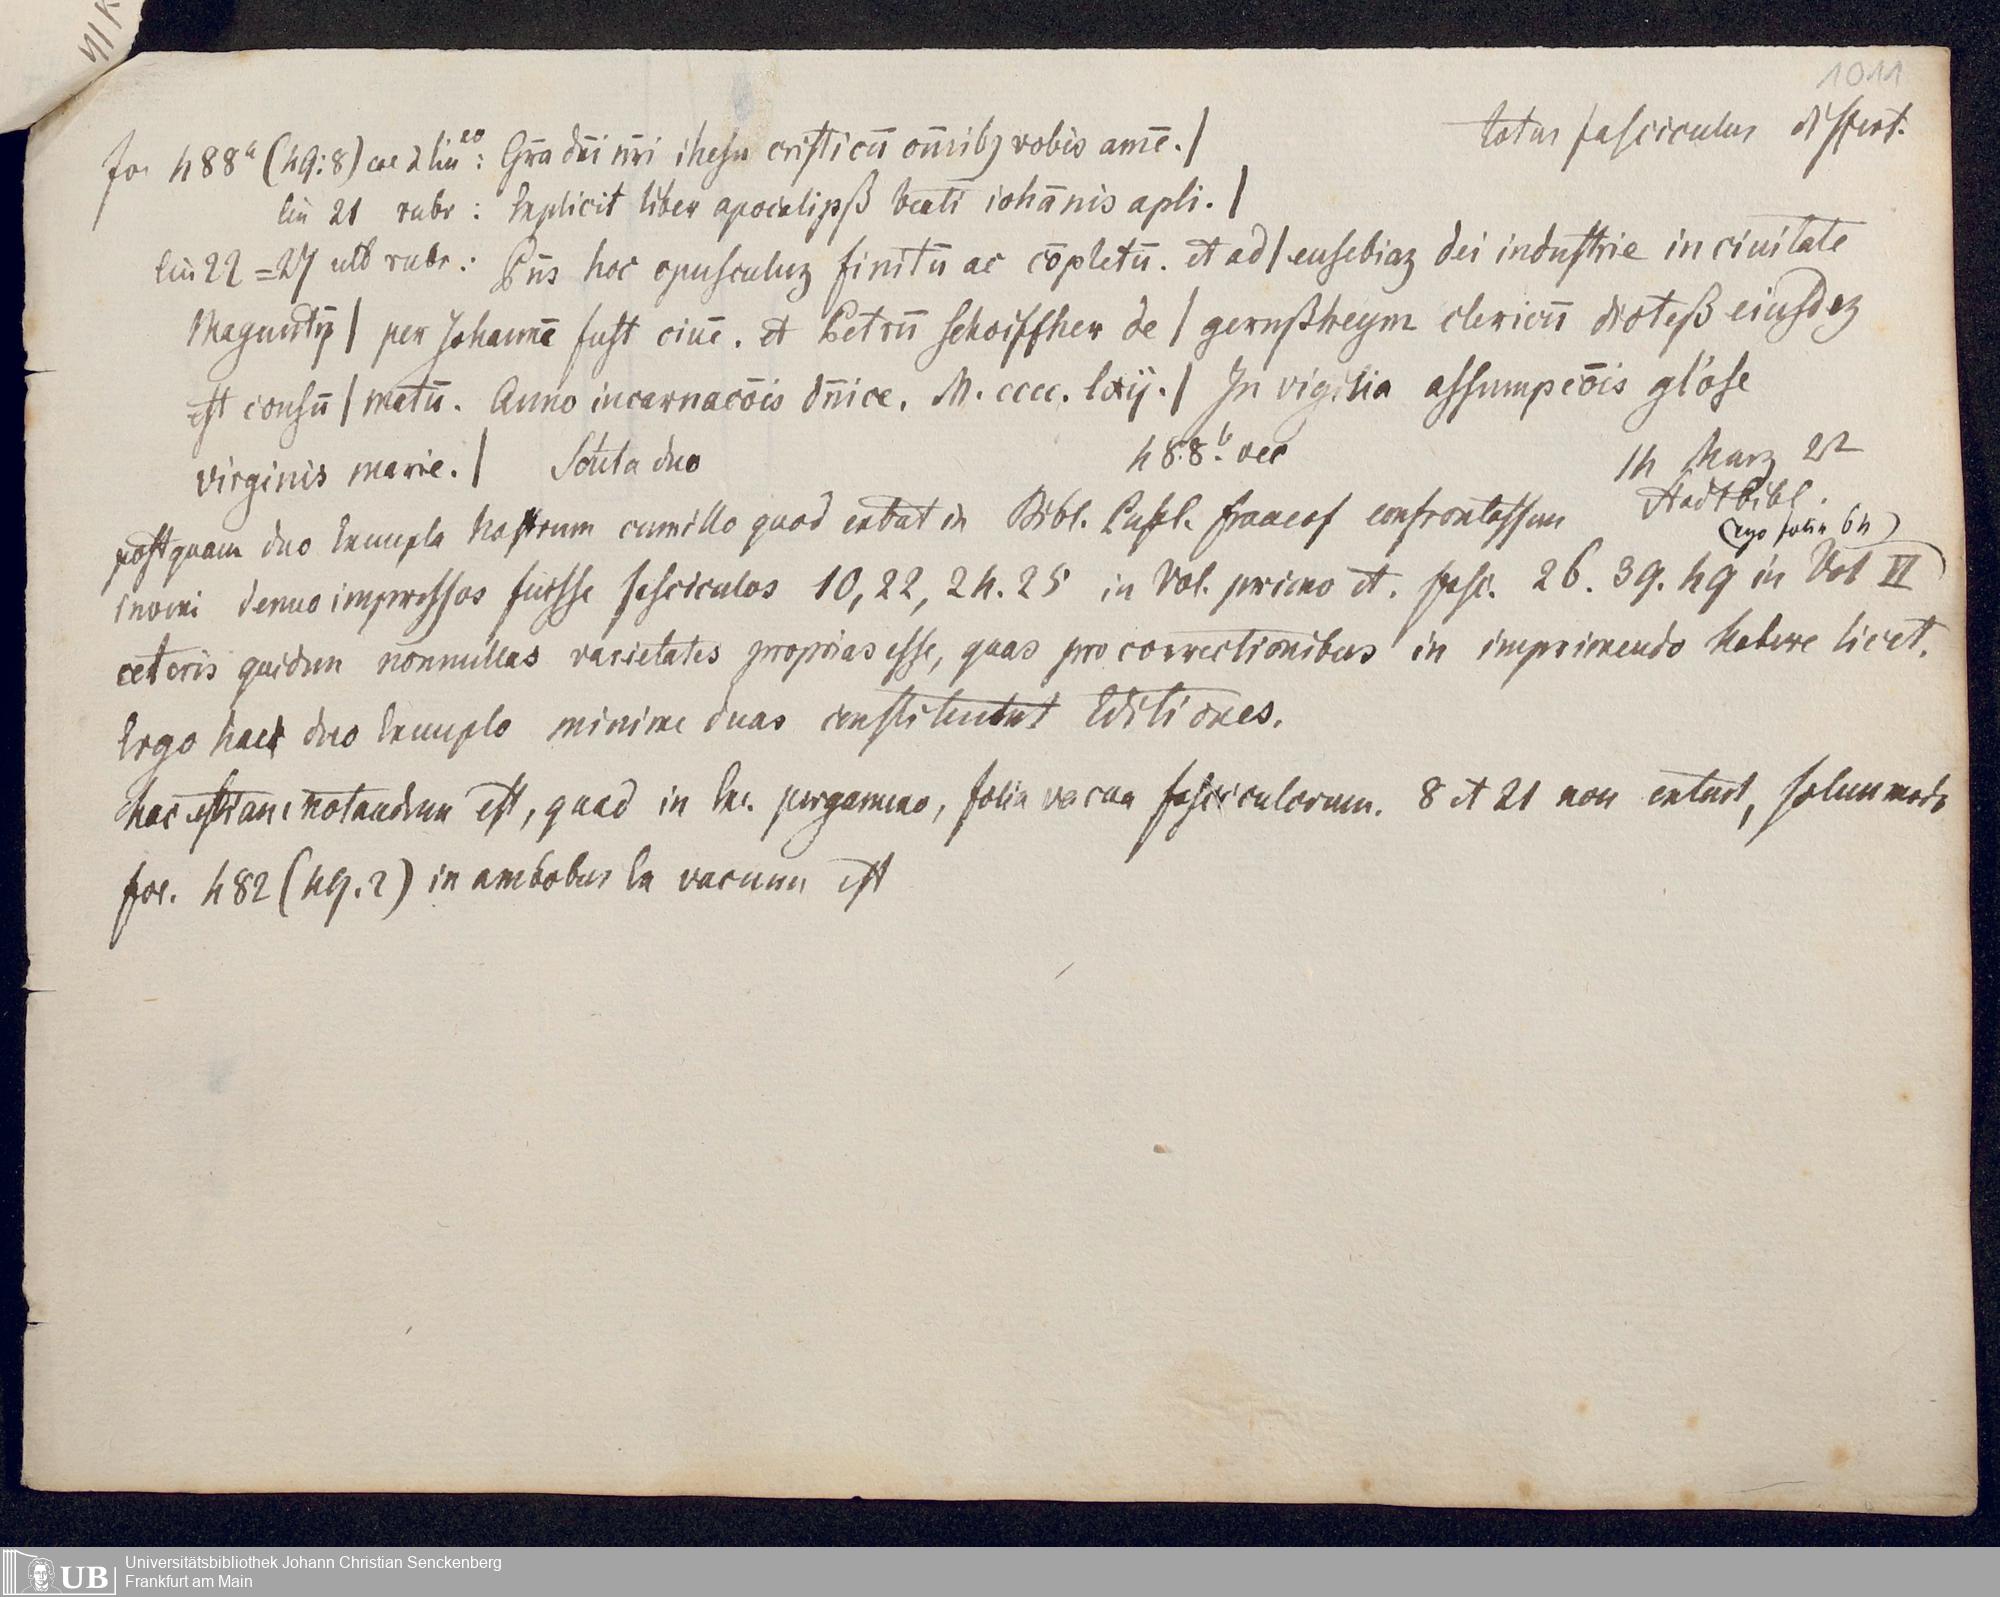 1011
totus fasciculus differt.
fol 488a (49:8) col 2 lin 20: Gr̄a dn̄i nr̄i ihesu cristi cū om̄ibꝫ vobis amē. |
lin 21 rubr: Explicit liber apocalipsß beati iohānis apli. |
lin 22=27 ult rubr: Pn̄s hoc opusculuz finitū ac cōpletū. et ad | eusebiaz dei industrie in ciuitate
Maguntij | per Johannē fust ciuē. et Petrū schoiffher de | gernßheym clericū dioteß eiusdez
est consū | matū. Anno incarnacōis dn̄ice. M. cccc. lxij. | In vigilia assumpcōis gl'ose
virginis marie. | Scuta duo 488b. vac 14 Marz 22
Stadtbibl.
postquam duo Exempla nostrum cum illo quod extat in Bibl. Publ. francof confrontassem
(ergo folia 64)
inveni denuo impressos fuisse fasciculos 10, 22, 24. 25 in Vol. primo et. fasc. 26. 39. 49 in Vol II
ceteris quidem nōnnullas varietates proprias esse, quas pro correctionibus in imprimendo habere licet.
Ergo haec duo Exempla minime duas constituunt Editiones.
hac etiam notandum est, quod in Ex. pergameno, folia vacua fasciculorum. 8 et 21 non extant, solummodo
fol. 482 (49.2) in ambobus Ex vacuum est
UB
Universitätsbibliothek Johann Christian Senckenberg
Frankfurt am Main